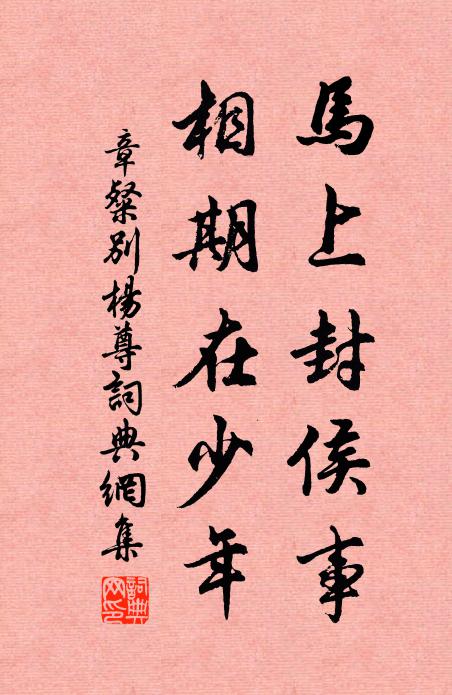 馬上封侯事
相期在少年
章粲別楊尊詞典網集
詞典
網印